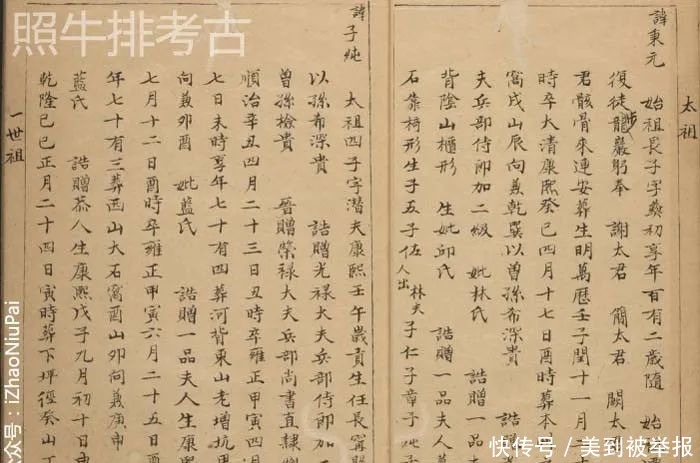 照牛排考古
太祖
諱東元 始祖長子字燕初享年百有二歲隨 始
復徙龍巖躬奉 謝太君 簡太君 闕太
君骸骨來連安葬生明萬曆壬子閏十一月二十
時卒大清康熙癸巳四月十七日酉時葬本
窩戌山辰向兼乾巽以曾孫布深貴 誥
夫兵部侍郎加二級 妣林氏 誥贈一品
背陰山櫃形 生妣邱氏 誥贈一品夫人
石靠椅形生子五子佐林夫人出子仁子章子純子
諱子純 太祖四子字潛夫康熙壬午歲貢生任長寧
以孫布深貴 誥贈光祿大夫兵部侍郎加
曾孫檢貴 晉贈榮祿大夫兵部尚書直隸
順治辛丑四月二十三日丑時卒雍正甲寅四月
七日未時享年七十有四葬河背東山老增坑
向兼卯酉 妣藍氏 誥贈一品夫人生康
七月十二日酉時卒雍正甲寅六月二十五
年七十有三葬西山大石窩酉山卯向兼庚申
藍氏 誥贈恭人生康熙戊子九月初十日申
乾隆己巳正月二十四日寅時葬下坪徑癸山丁
一世祖
众号：iZhaoNiuPai
快传号／美到被举报